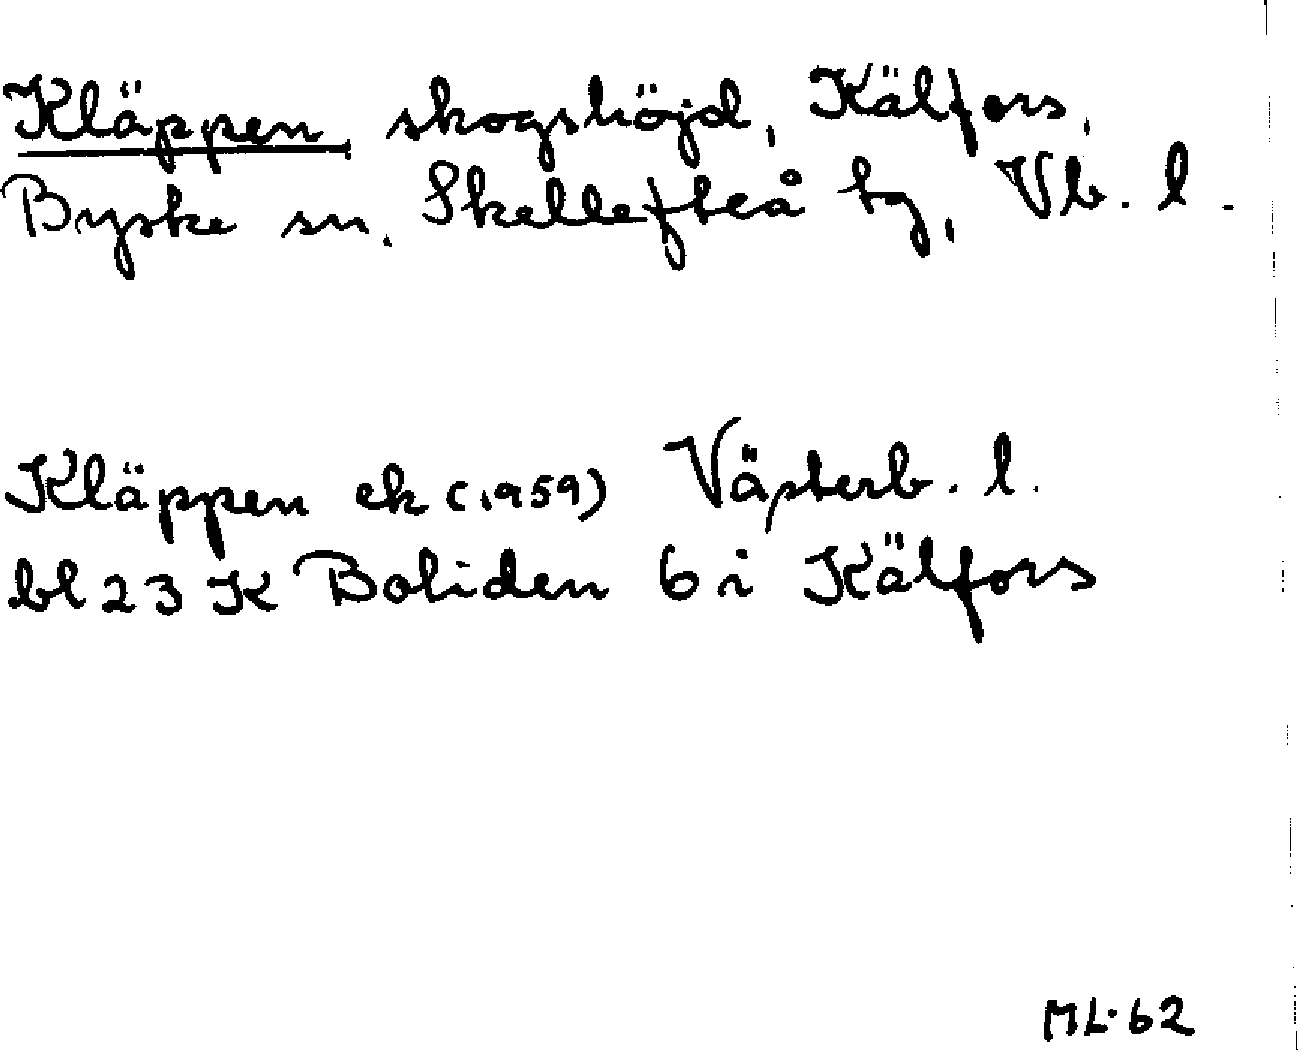 Kläppen, skogshöjd, Kälfors,
Byske sn. Skellefteå tg, Vb. l.
Kläppen ek (1959) Västerb. l.
bl 23 K Boliden 6 i Kälfors
ML. 62